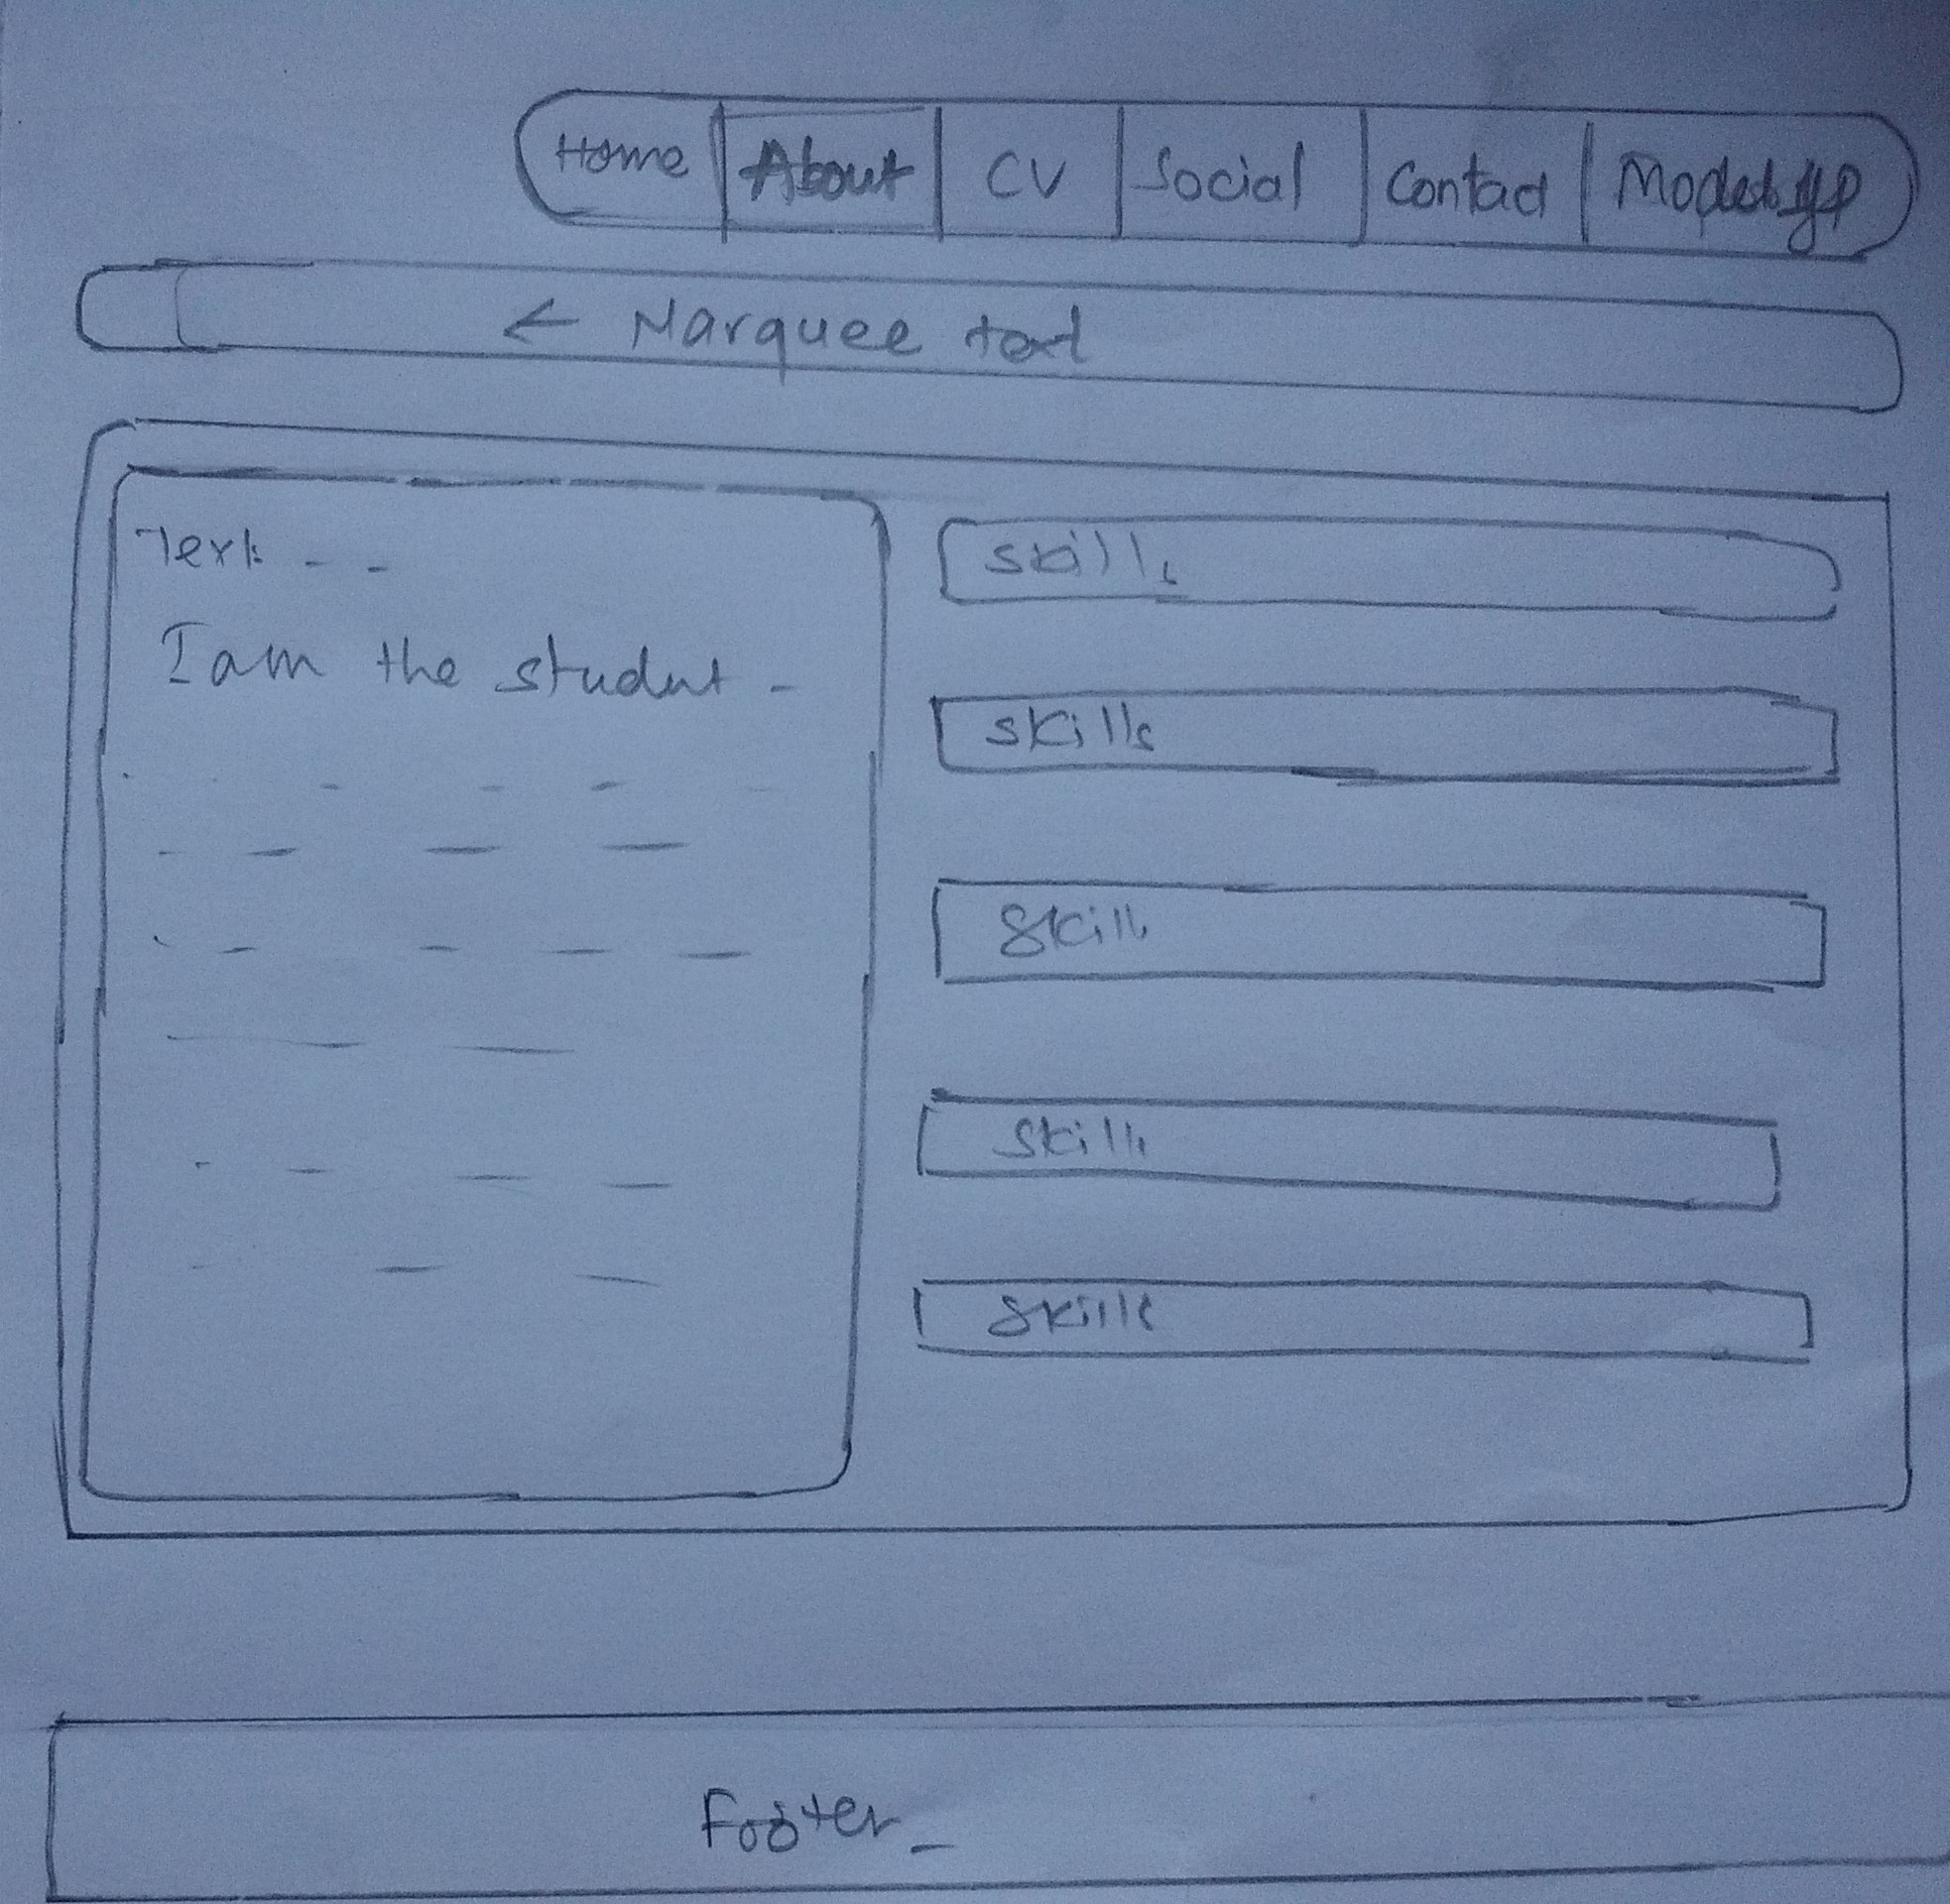 Home About CV Social Contact
← Marquee text
Text - -
I am the student -
skills
skills
skills
skills
skills
Footer